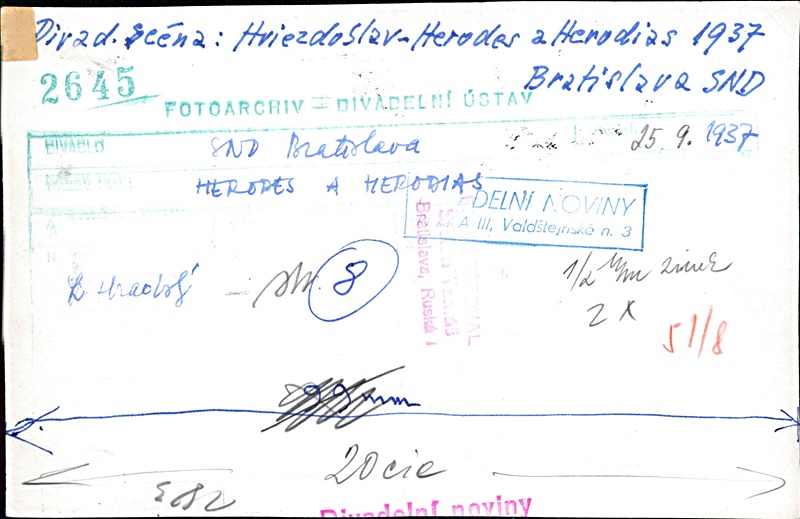 Divad. scéna: Hviezdoslav-Herodes a Herodias 1937
Bratislava SND
2645
FOTOARCHIV – DIVADELNÍ ÚSTAV
DIVADLO
SND Bratislava
25. 9. 1937
HERODES A HERODIAS
DELNÍ NOVINY
A III, Valdštejnské n. 3
Bratislava, Ruská 1
str. 8
1/2
2 X
51/8
20 cic
Divadelní noviny